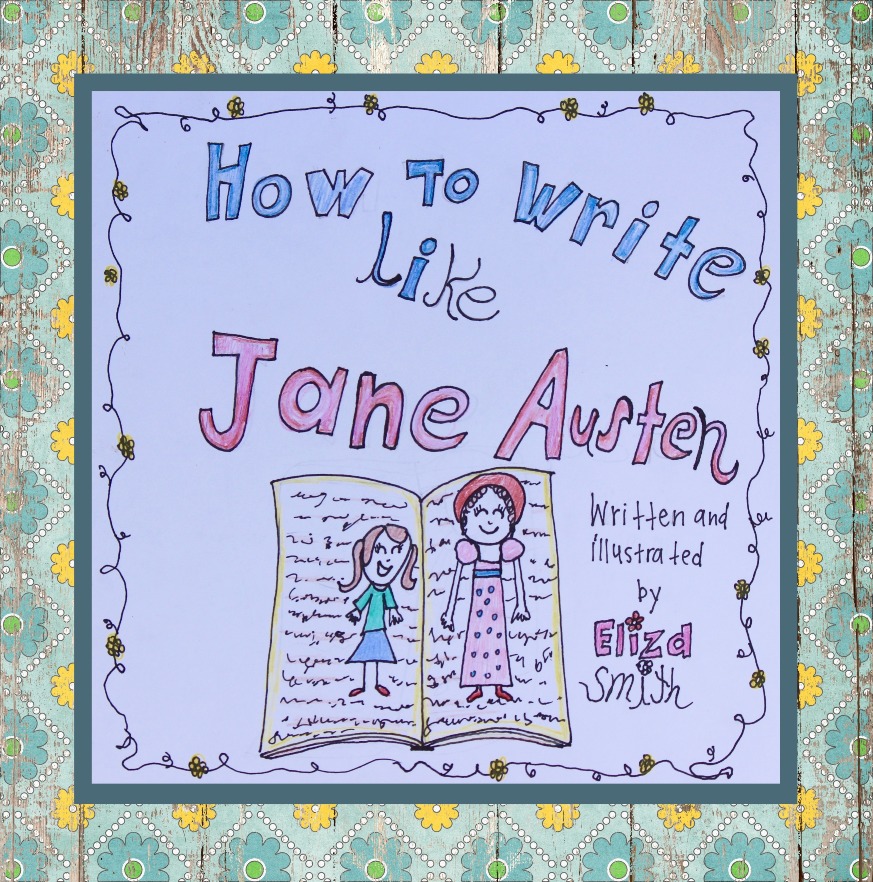 How To Write
like
Jane Austen
Written and
illustrated
by
Eliza
Smith